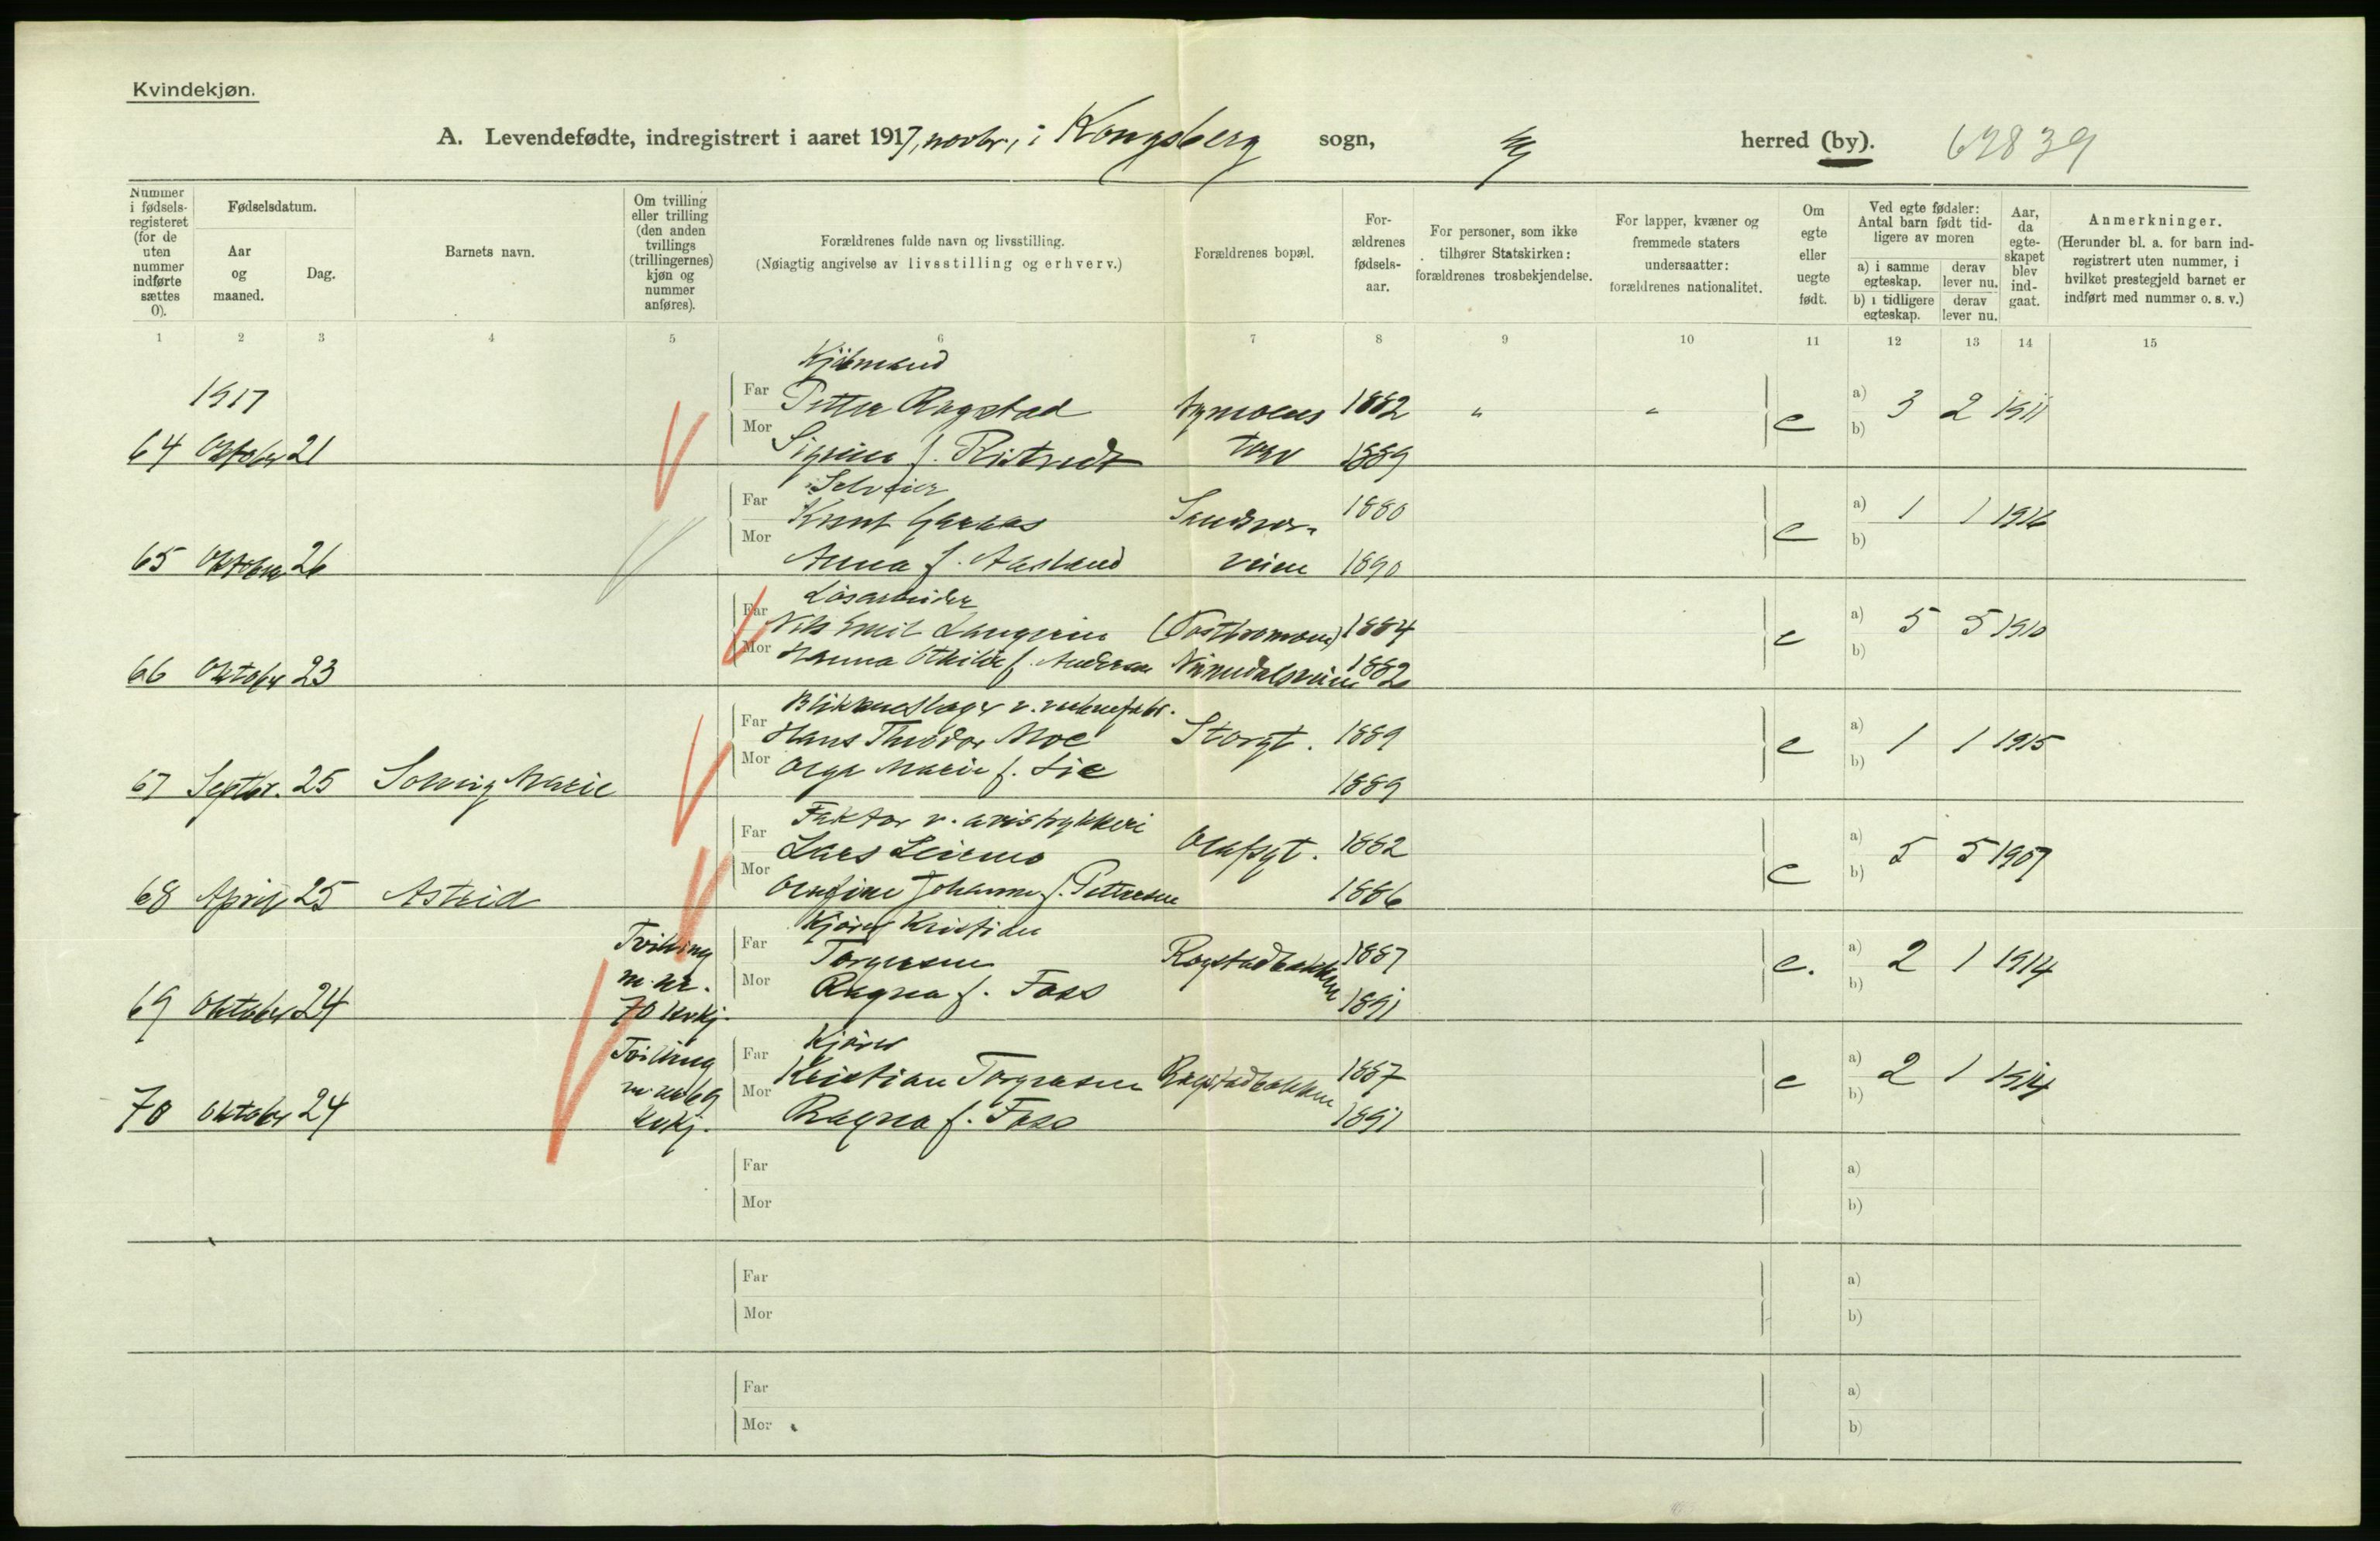 Kvindekjøn.
A. Levendefødte, indregistrert i aaret 1917, novbr., i Kongsberg sogn, herred (by). 62839
Nummer i fødselsregisteret (for de uten nummer indførte sættes 0).
Fødselsdatum.
Aar og maaned.
Dag.
Barnets navn.
Om tvilling eller trilling (den anden tvillings (trillingernes) kjøn og nummer anføres).
Forældrenes fulde navn og livsstilling.
(Nøiagtig angivelse av livsstilling og erhverv.)
Forældrenes bopæl.
Forældrenes fødselsaar.
For personer, som ikke tilhører Statskirken: forældrenes trosbekjendelse.
For lapper, kvæner og fremmede staters undersaatter: forældrenes nationalitet.
Om egte eller uegte født.
Ved egte fødsler: Antal barn født tidligere av moren
a) i samme egteskap. derav lever nu.
b) i tidligere egteskap. derav lever nu.
Aar, da egteskapet blev indgaat.
Anmerkninger.
(Herunder bl. a. for barn indregistrert uten nummer, i hvilket prestegjeld barnet er indført med nummer o. s. v.)
1 2 3 4 5 6 7 8 9 10 11 12 13 14 15
Kjøbmand
1917 Far Petter Rogstad 1882 " " a) 3 2 1911
64 Oktober 21 Mor f. torv 1889 e b)
Selveier
Far Knut 1880 a) 1 1 1916
65 Oktober 26 Mor Anna f. Aasland veien 1890 e b)
Løsarbeider
Far Nils Emil 1884 a) 5 5 1910
66 Oktober 23 Mor Hanna Othilde f. Andersen Numedalsveien 1882 e b)
Blikkenslager v. vaabenfabr.
Far Hans Theodor Moe Storgt. 1889 a) 1 1 1915
67 Septbr. 25 Solveig Marie Mor Olga Marie f. Lie 1889 e b)
Faktor v. avistrykkeri
Far Lars Olafsgt. 1882 a) 5 5 1907
68 April 25 Astrid Mor Olufine Johanne f. Pettersen 1886 e b)
Tvilling Kjører Kristian
m. nr. Far Torgersen Rogstadbakken 1887 a) 2 1 1914
69 Oktober 24 70 kvkj. Mor Ragna f. Foss 1891 e. b)
Tvilling Kjører
m. nr 69 Far Kristian Torgersen Rogstadbakken 1887 a) 2 1 1914
70 Oktober 24 kvkj. Mor Ragna f. Foss 1891 e b)
Far a)
Mor b)
Far a)
Mor b)
Far a)
Mor b)